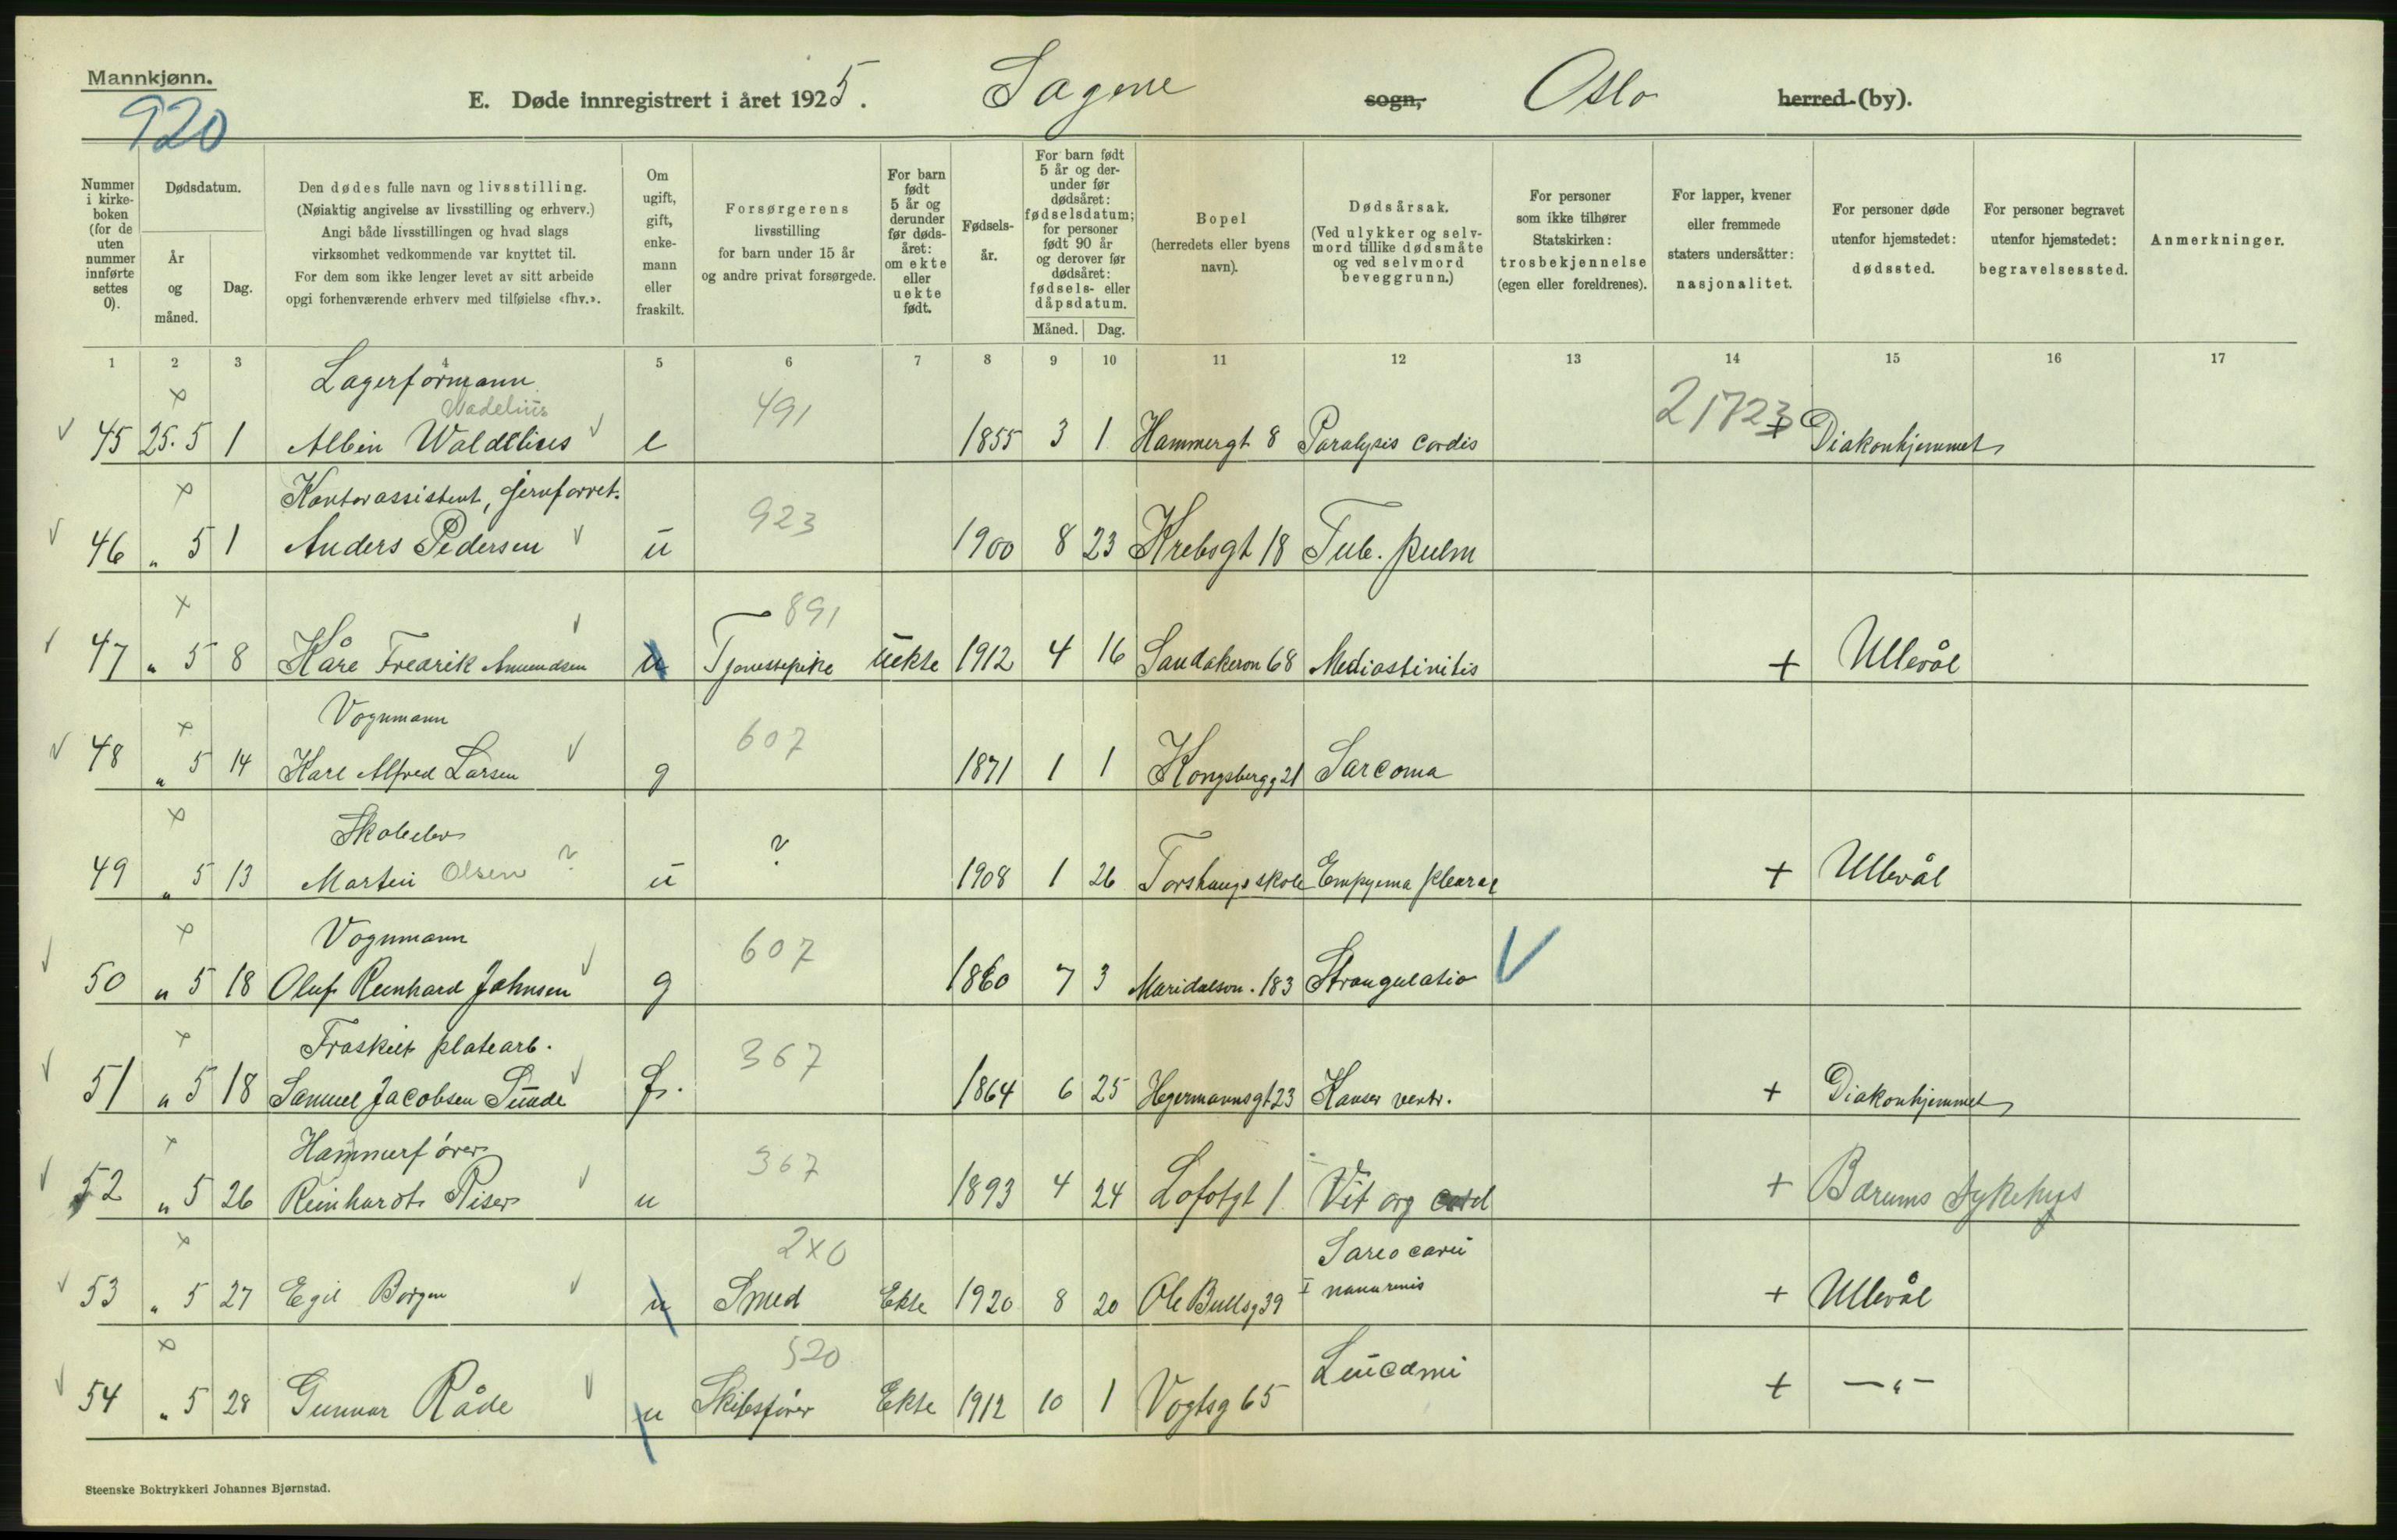 Mannkjønn.
920
E. Døde innregistrert i året 1925. Sagene sogn, Oslo herred (by).
Nummer i kirke-boken (for de uten nummer innførte settes 0).
Dødsdatum.
År og måned.
Dag.
Den dødes fulle navn og livsstilling.
(Nøiaktig angivelse av livsstilling og erhverv.)
Angi både livsstillingen og hvad slags
virksomhet vedkommende var knyttet til.
For dem som ikke lenger levet av sitt arbeide
opgi forhenværende erhverv med tilføielse «fhv.».
Om ugift, gift, enke-mann eller fraskilt.
Forsørgerens
livsstilling
for barn under 15 år
og andre privat forsørgede.
For barn født 5 år og derunder før døds-året: om ekte eller uekte født.
Fødsels-år.
For barn født 5 år og der-under før dødsåret: fødselsdatum; for personer født 90 år og derover før dødsåret: fødsels- eller dåpsdatum.
Måned. Dag.
Bopel
(herredets eller byens navn).
Dødsårsak.
(Ved ulykker og selv-mord tillike dødsmåte og ved selvmord beveggrunn.)
For personer som ikke tilhører Statskirken: trosbekjennelse (egen eller foreldrenes).
For lapper, kvener eller fremmede staters undersåtter: nasjonalitet.
For personer døde utenfor hjemstedet: dødssted.
For personer begravet utenfor hjemstedet: begravelsessted.
Anmerkninger.
1 2 3 4 5 6 7 8 9 10 11 12 13 14 15 16 17
Lagerformann
Wadelius 491 21723
45 25. 5 1 Albin Waldelius e 1855 3 1 Hammergt 8 Paralysis cordis + Diakonhjemmet
Kontorassistent, jernforret.
923
46 " 5 1 Anders Pedersen u 1900 8 23 Krebsgt 18 Tub. pulm
891
47 " 5 8 Kåre Fredrik Amundsen u Tjenestepike Uekte 1912 4 16 Sandakerven 68 Mediastinitis + Ullevål
Vognmann
607
48 " 5 14 Karl Alfred Larsen g 1871 1 1 Kongsbergg 21 Sarcoma
Skoleelev
?
49 " 5 13 Martin Olsen ? u 1908 1 26 Torshaugs skole Empyema pleurae + Ullevål
Vognmann
607
50 " 5 18 Oluf Reinhard Johnsen g 1860 7 3 Maridalsvn. 183 Strangulatio
Fraskilt platearb.
367
51 " 5 18 Samuel Jacobsen Sunde fr. 1864 6 25 Hegermannsgt 23 Kanser ventr. + Diakonhjemmet
Hammerfører
367
52 " 5 26 Reinhardt Riser u 1893 4 24 Lofotgt 1 Vit org cord + Bærums sykehus
2x0
53 " 5 27 Egil Borgen u Smed Ekte 1920 8 20 Ole Bullsg 39 + Ullevål
520
54 " 5 28 Gunnar Råde u Skibsfører Ekte 1912 10 1 Vogtsg 65 Leucæmi + —"—
Steenske Boktrykkeri Johannes Bjørnstad.